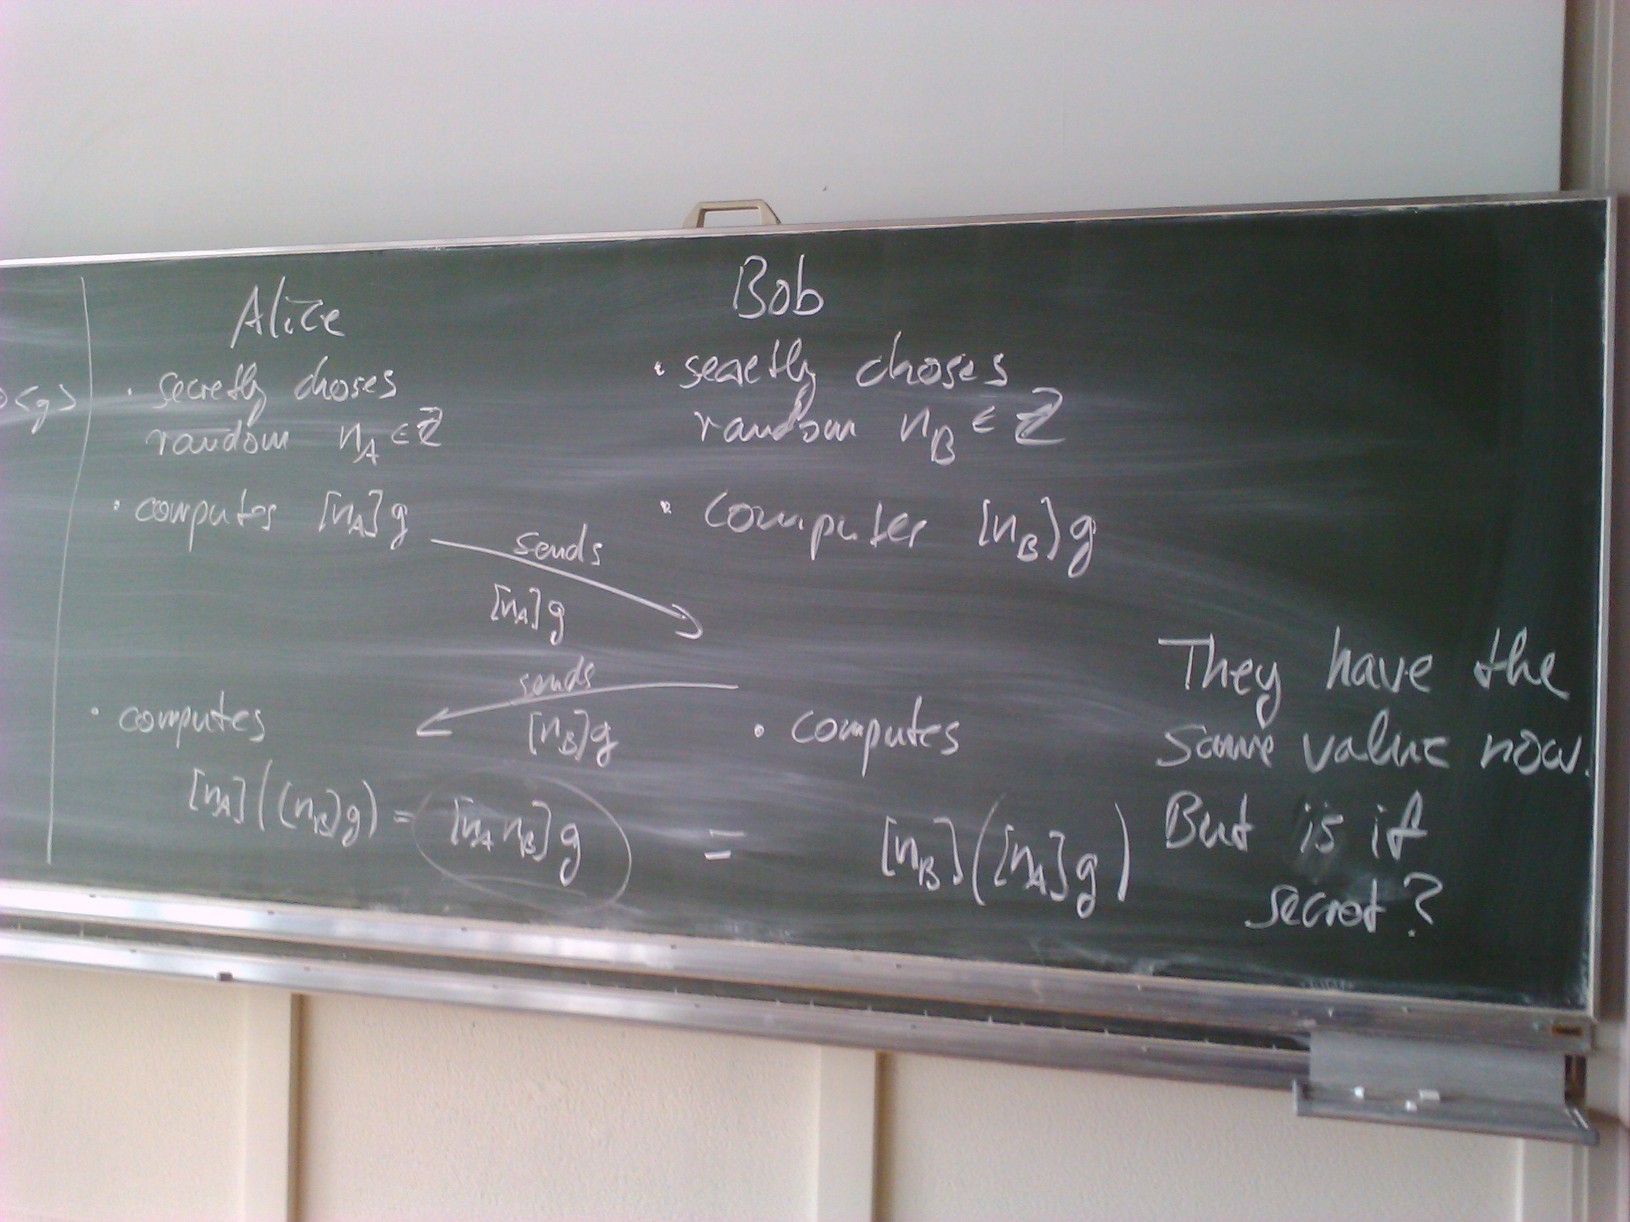 <g>
Alice
· secretly choses
random n_A ∈ Z
· computes [n_A]g
sends
[n_A]g
sends
[n_B]g
· computes
[n_A]([n_B]g) = [n_A n_B]g = [n_B]([n_A]g)
Bob
· secretly choses
random n_B ∈ Z
· computes [n_B]g
· computes
They have the
same value now.
But is it
secret?